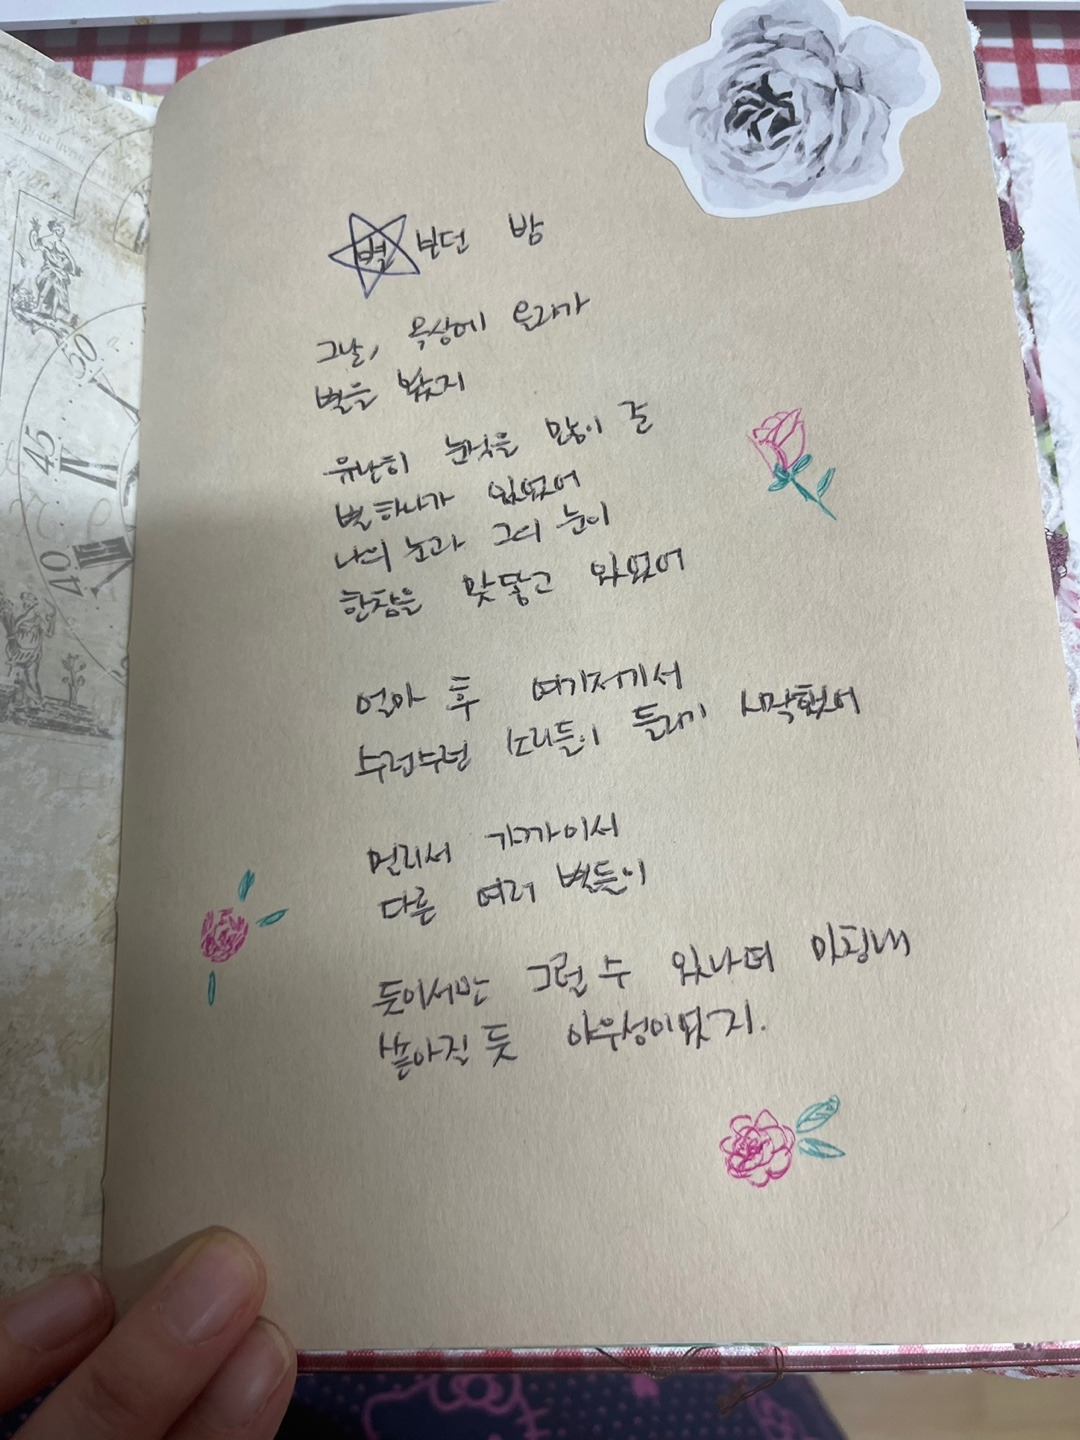 별 보던 밤
그날, 옥상에 올라가
별을 봤지
유난히 눈빛을 많이 준
별 하나가 있었어
나의 눈과 그의 눈이
한참을 맞닿고 있었어
얼마 후 여기저기서
수런수런 소리들이 들리기 시작했어
멀리서 가까이서
다른 여러 별들이
둘이서만 그럴 수 있냐며 마침내
쏟아질 듯 아우성이었지.
50
45
40